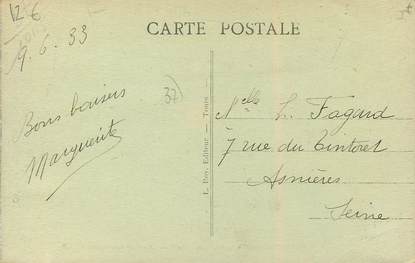 12 €
9.6.33
CARTE POSTALE
Bons baisers
Marguerite
37
Melle L. Fagard
7 rue du Tintoret
Asnières
Seine
Editeur — Tours